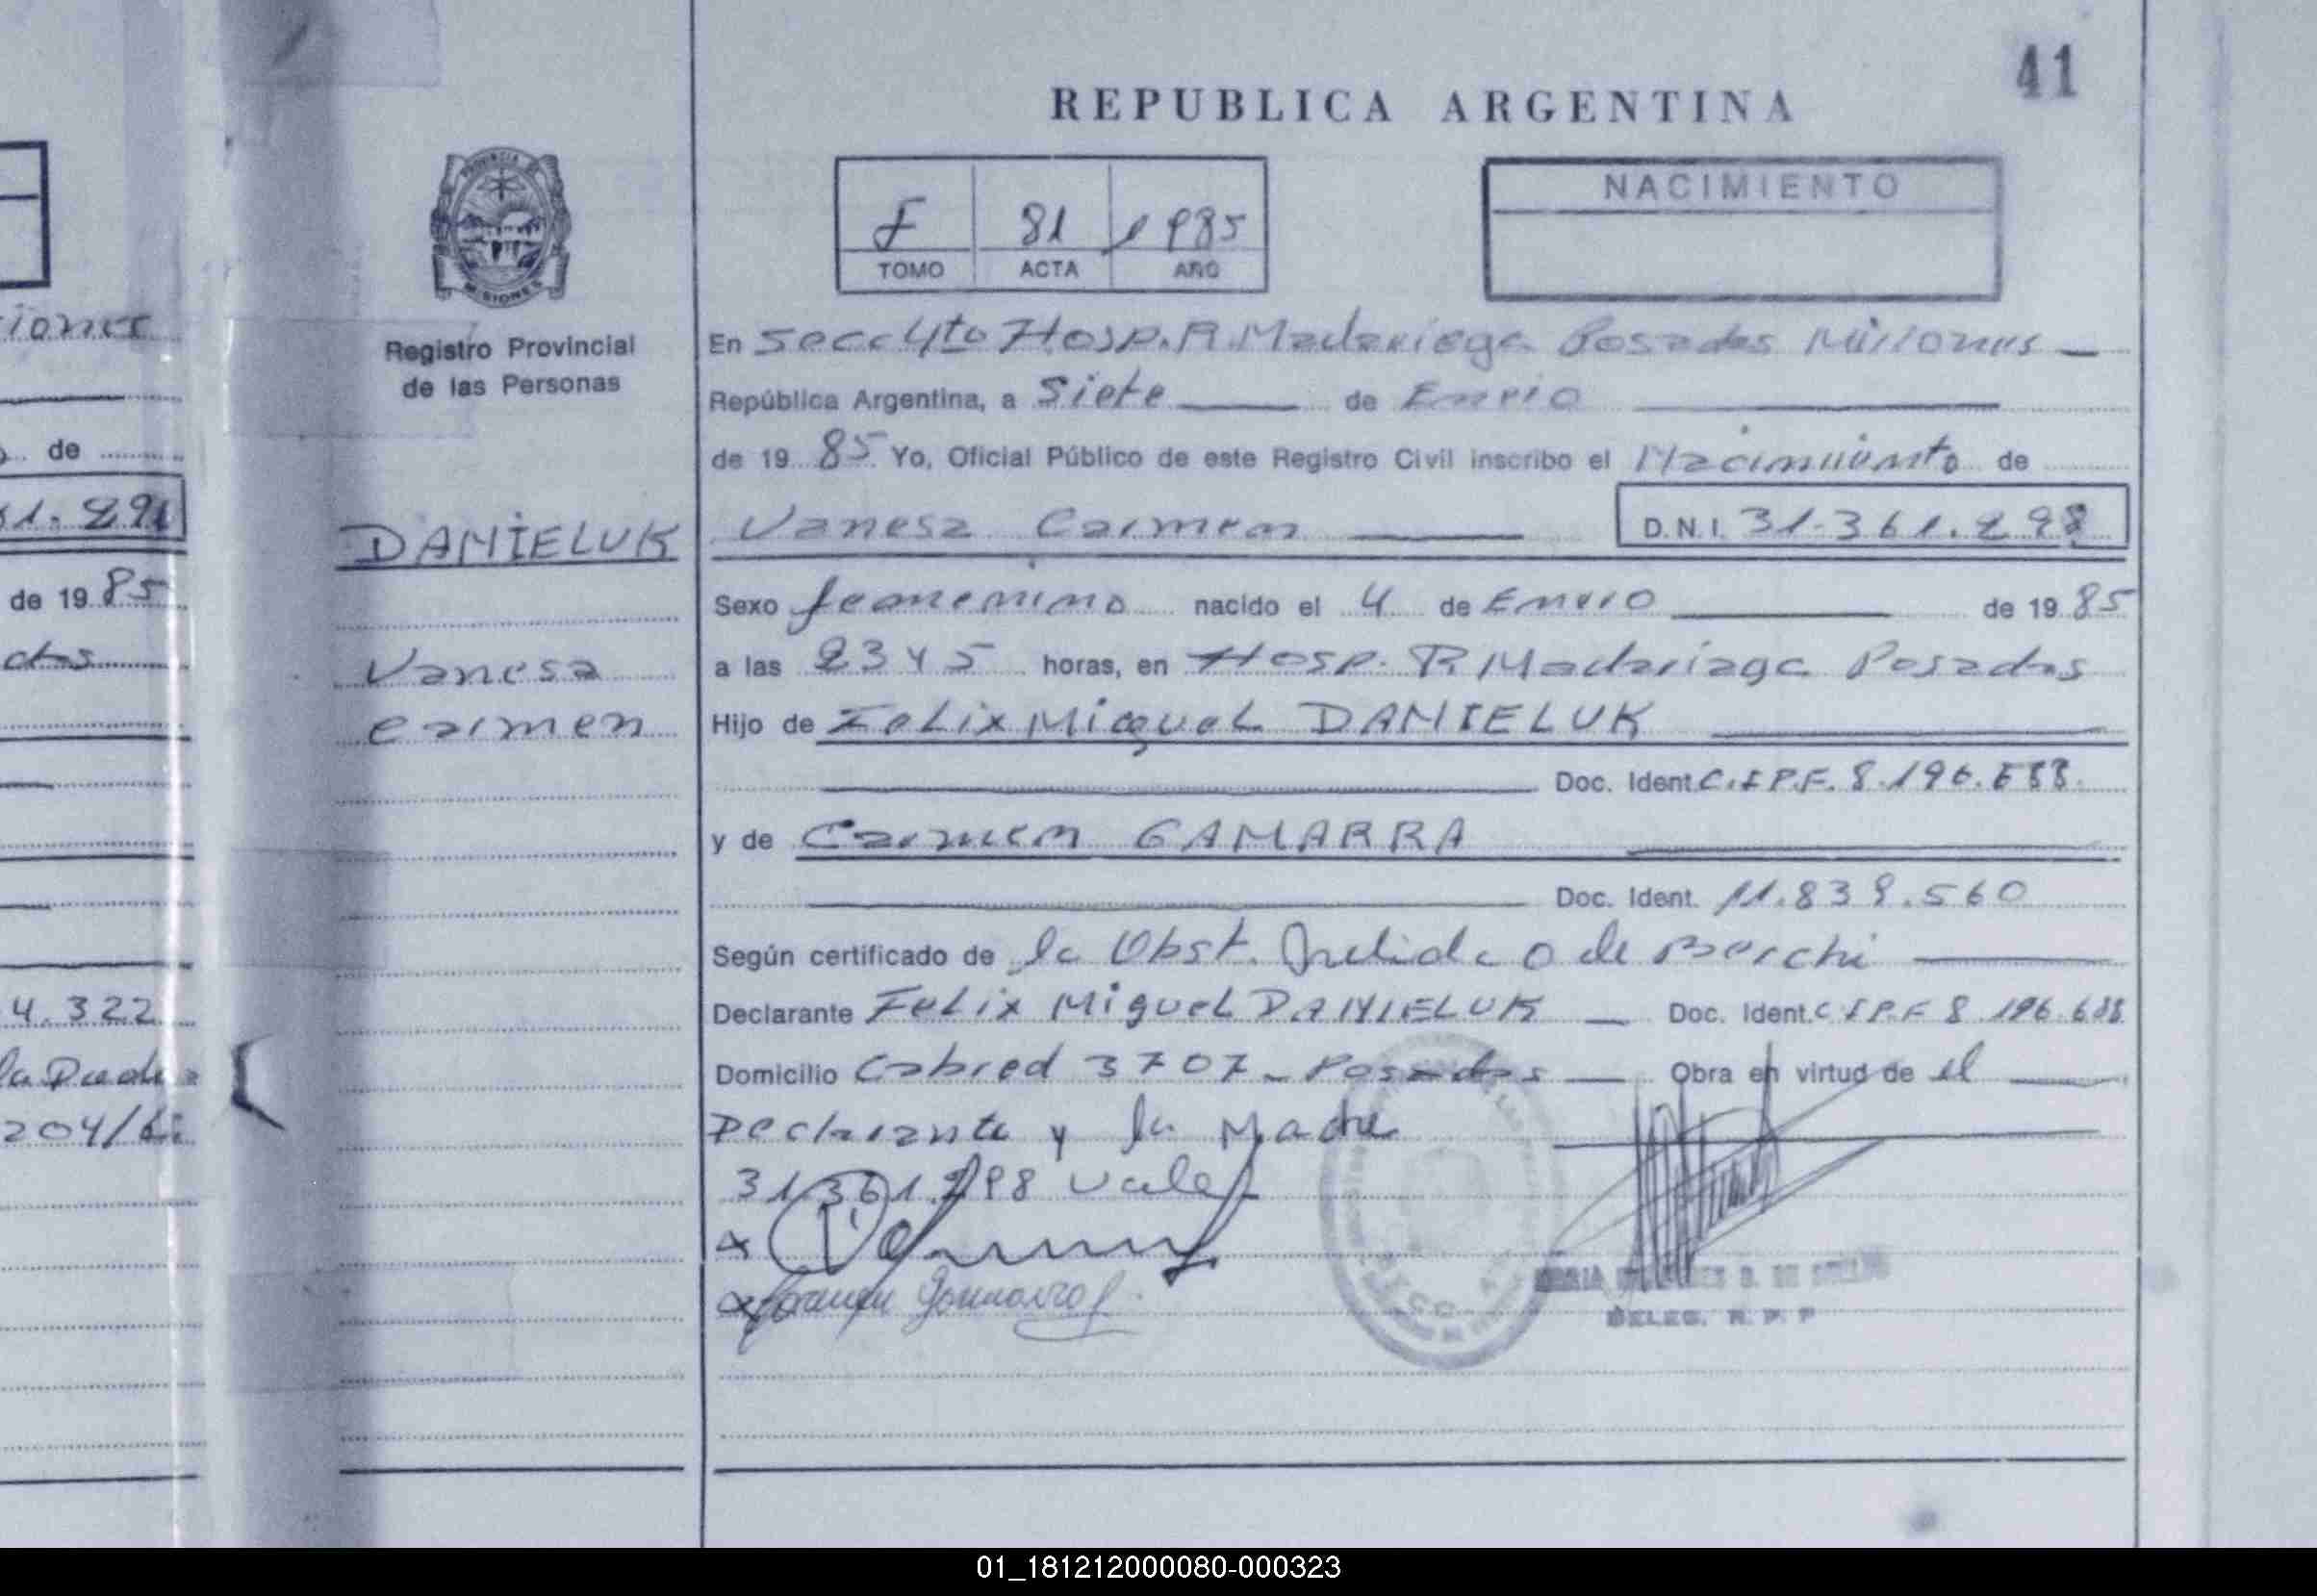 41
REPUBLICA ARGENTINA
NACIMIENTO
F 81 1985
TOMO ACTA AÑO
PROVINCIA DE
MISIONES
Registro Provincial
de las Personas
En Secc 4to Hosp. R. Madariaga Posadas Misiones
República Argentina, a Siete de Enero
de 19 85 Yo, Oficial Público de este Registro Civil inscribo el Nacimiento de
DANIELUK Vanesa Carmen D.N.I. 31.361.298
Sexo femenino nacido el 4 de Enero de 19 85
Vanesa
Carmen
a las 2345 horas, en Hosp. R. Madariaga Posadas
Hijo de Felix Miguel DANIELUK
Doc. Ident. C.I P.F. 8.196.688
y de Carmen GAMARRA
Doc. Ident. 11.839.560
Según certificado de la Obst. O de Berchi
Declarante Felix Miguel DANIELUK Doc. Ident. C I P.F 8.196.688
Domicilio Cabred 3707 - Posadas Obra en virtud de el
Declarante y la Madre
31.361.298 vale
x
x Carmen Gamarra
DELEG. R. P. P
iones
de
61.291
de 19 85
4.322
la
204/
01_181212000080-000323